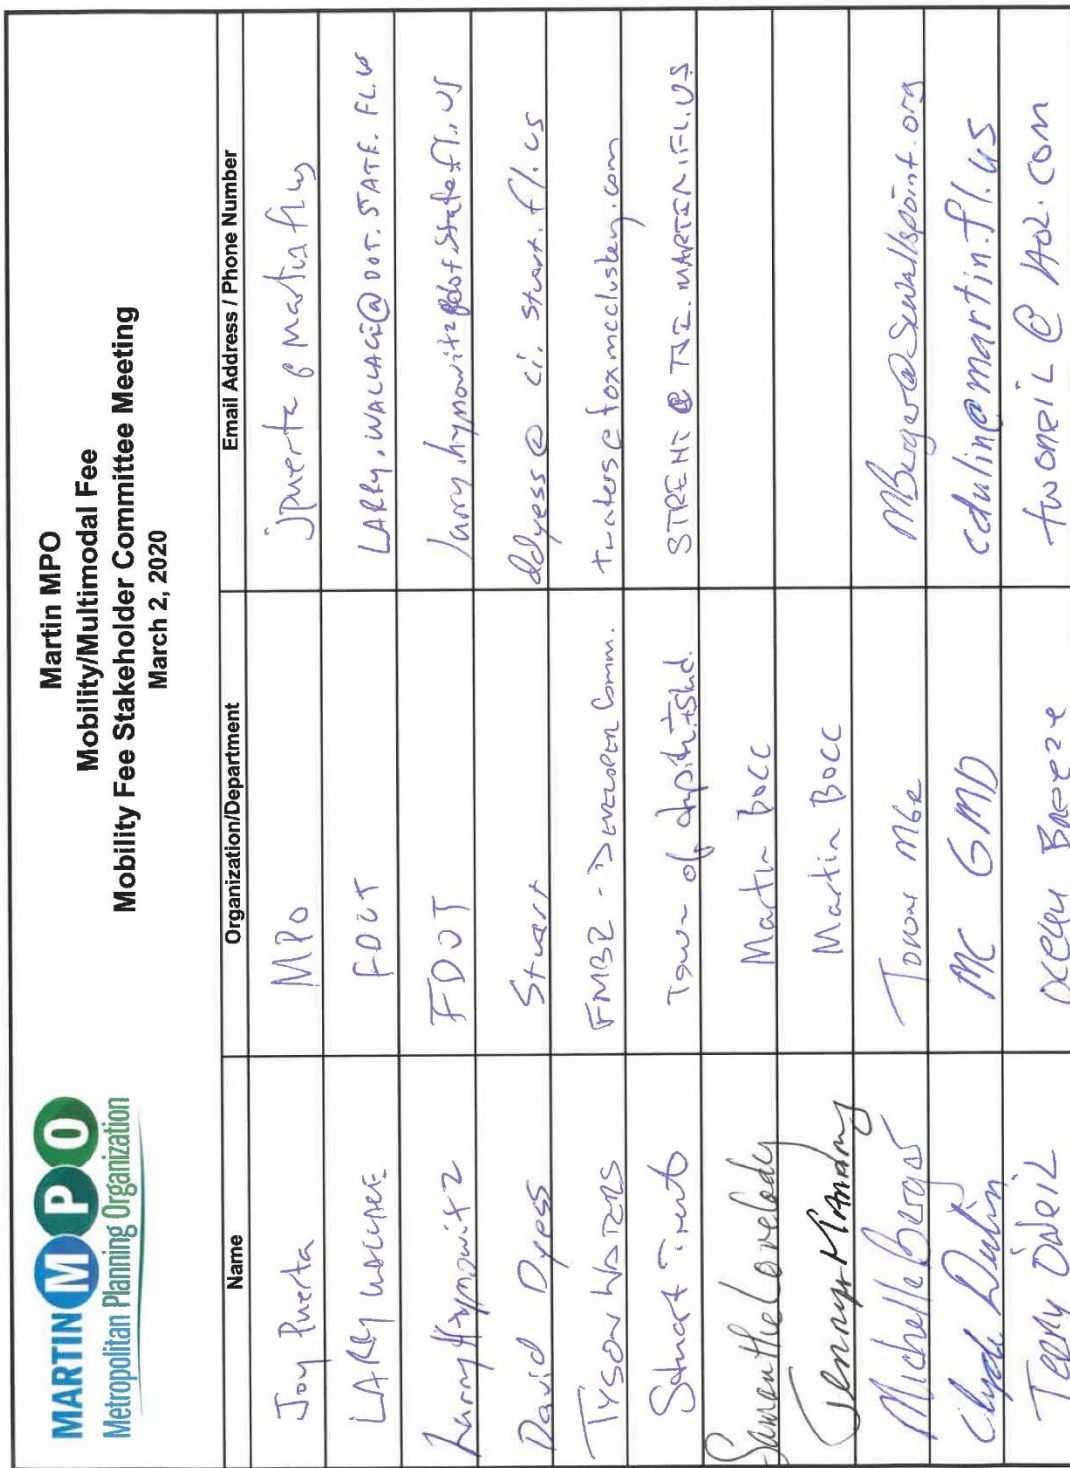 MARTIN MPO
Metropolitan Planning Organization
Martin MPO
Mobility/Multimodal Fee
Mobility Fee Stakeholder Committee Meeting
March 2, 2020
Name Organization/Department Email Address / Phone Number
Joy Puerta MPO jpuerta@martin.fl.us
LARRY WALLACE FDOT LARRY.WALLACE@DOT.STATE.FL.US
Larry Hymowitz FDOT larry.hymowitz@dot.state.fl.us
David Dyess Stuart ddyess@ci.stuart.fl.us
TYSON WATERS FMBR - DEVELOPER Comm. twaters@foxmccluskey.com
Stuart Town of STRENT@TJI.MARTIN.FL.US
Samantha Lovelady Martin BOCC
Martin BOCC
Michelle Berger Town MGR MBerger@sewallspoint.org
Clyde Dulin MC GMD cdulin@martin.fl.us
TERRY ONEIL OCEAN BREEZE twoneil@AOL.COM